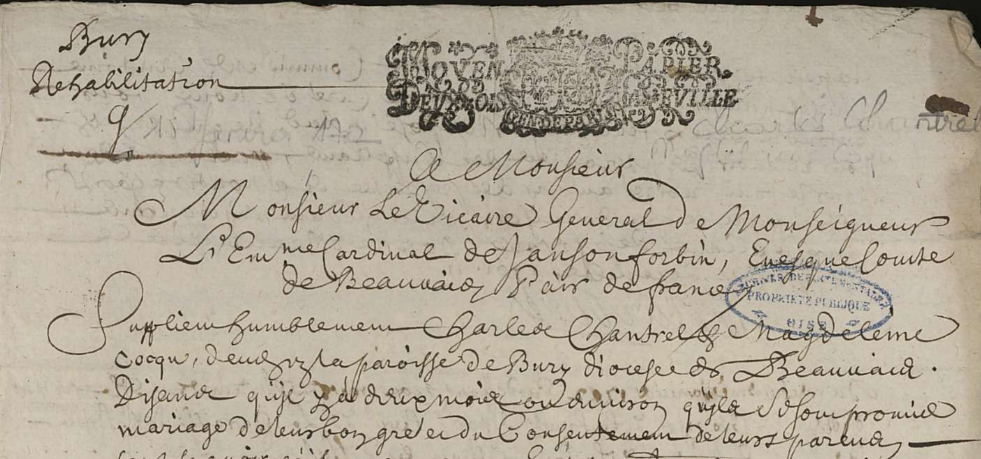 Bury
Rehabilitation
MOYEN PAPIER
DEUX SOLS LA FEUILLE
GEN DE PARIS
Charles Chantrel
A Monsieur
Monsieur Le Vicaire General de Monseigneur
L'Em.me Cardinal de Janson forbin, Evesque Comte
de Beauvais Pair de france
ARCHIVES DEPARTEMENTALES
PROPRIETE PUBLIQUE
OISE
Supplient humblement Charles Chantrel & Magdeleine
Cocqu, de la paroisse de Bury diocese de Beauvais.
Disant qu'il y a deux mois ou environ quils se sont promis
mariage de leur bon gré et du Consentement de leurs parens